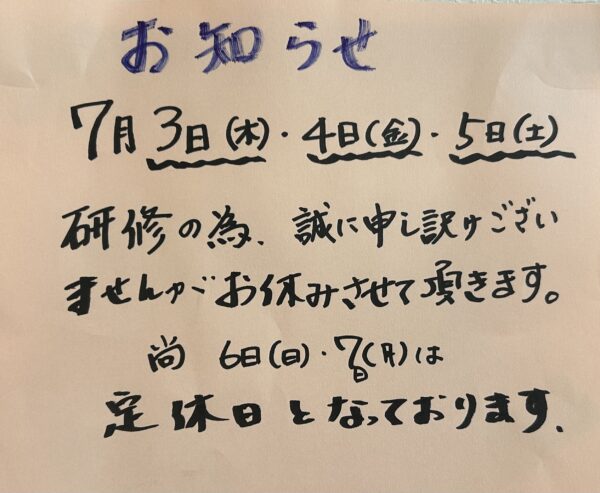 お知らせ
7月3日(木)・4日(金)・5日(土)
研修の為、誠に申し訳けござい
ませんがお休みさせて頂きます。
尚 6日(日)・7日(月)は
定休日となっております.